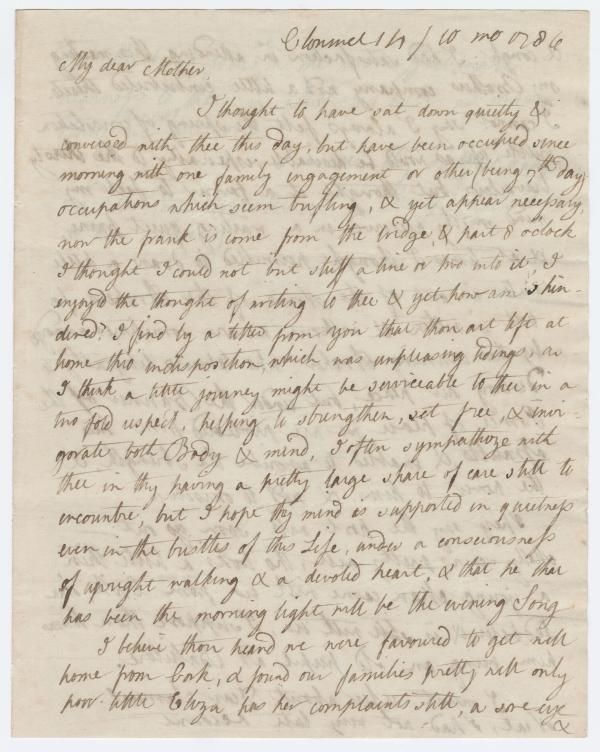 Clonmel 14 / 10 mo 1786
My dear Mother
I thought to have sat down quietly &
conversed with thee this day, but have been occupied since
morning with one family engagement or other (being 7th day)
occupations which seem bustling, & yet appear necessary,
now the frank is come from the bridge & past 8 o'clock
I thought I could not but stuff a line or two into it, I
enjoyd the thought of writing to thee & yet how am I hin-
dered? I find by a letter from you that thou art left at
home thro' indisposition, which was unpleasing tidings, as
I think a little journey might be serviceable to thee in a
two fold respect, helping to strengthen, set free, & invi-
gorate both Body & mind, I often sympathize with
thee in thy having a pretty large share of care still to
encountre, but I hope thy mind is supported in quietness
even in the bustles of this Life, under a consciousness
of upright walking & a devoted heart, & that he that
has been the morning light will be the evening Song
I believe thou heard we were favoured to get well
home from Cork, & found our families pretty well only
poor little Eliza has her complaints still, a sore eye
&